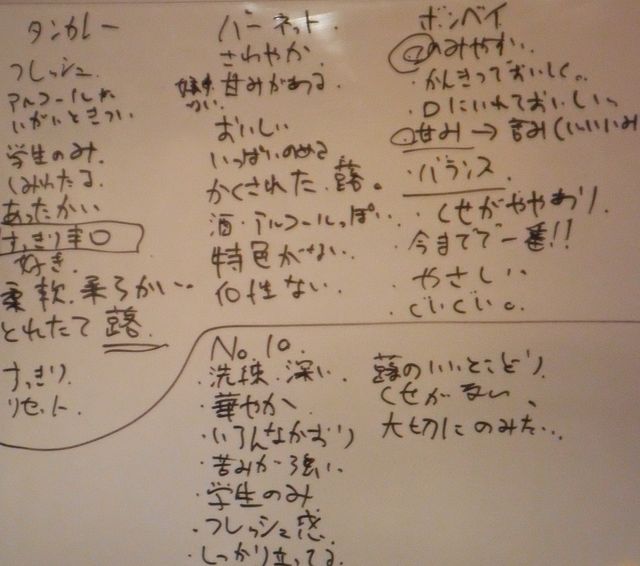 タンカレー
フレッシュ
アルコールが
いがいときつい
学生のみ.
しみわたる.
あったかい
すっきり辛口
好き.
柔軟.柔らかい..
とれたて 蕗.
すっきり.
リセット.
バーネット.
さわやか
甘みがある
おいしい
いっぱいのめる
かくされた.蕗。
酒・アルコールっぽい.
特色がない.
個性ない.
ボンベイ
のみやすい..
・かんきつでおいしく。
・口にいれておいしい
甘み→苦み(いいいみ
・バランス
・くせがややあり.
・今までで一番!!
・やさしい
・ぐいぐい。
No.10.
・洗練.深い.
・華やか
・いろんなかおり
・苦みが強い.
・学生のみ
・フレッシュ感.
・しっかり立ってる.
蕗のいいとこどり
くせがない、
大切にのみたい..